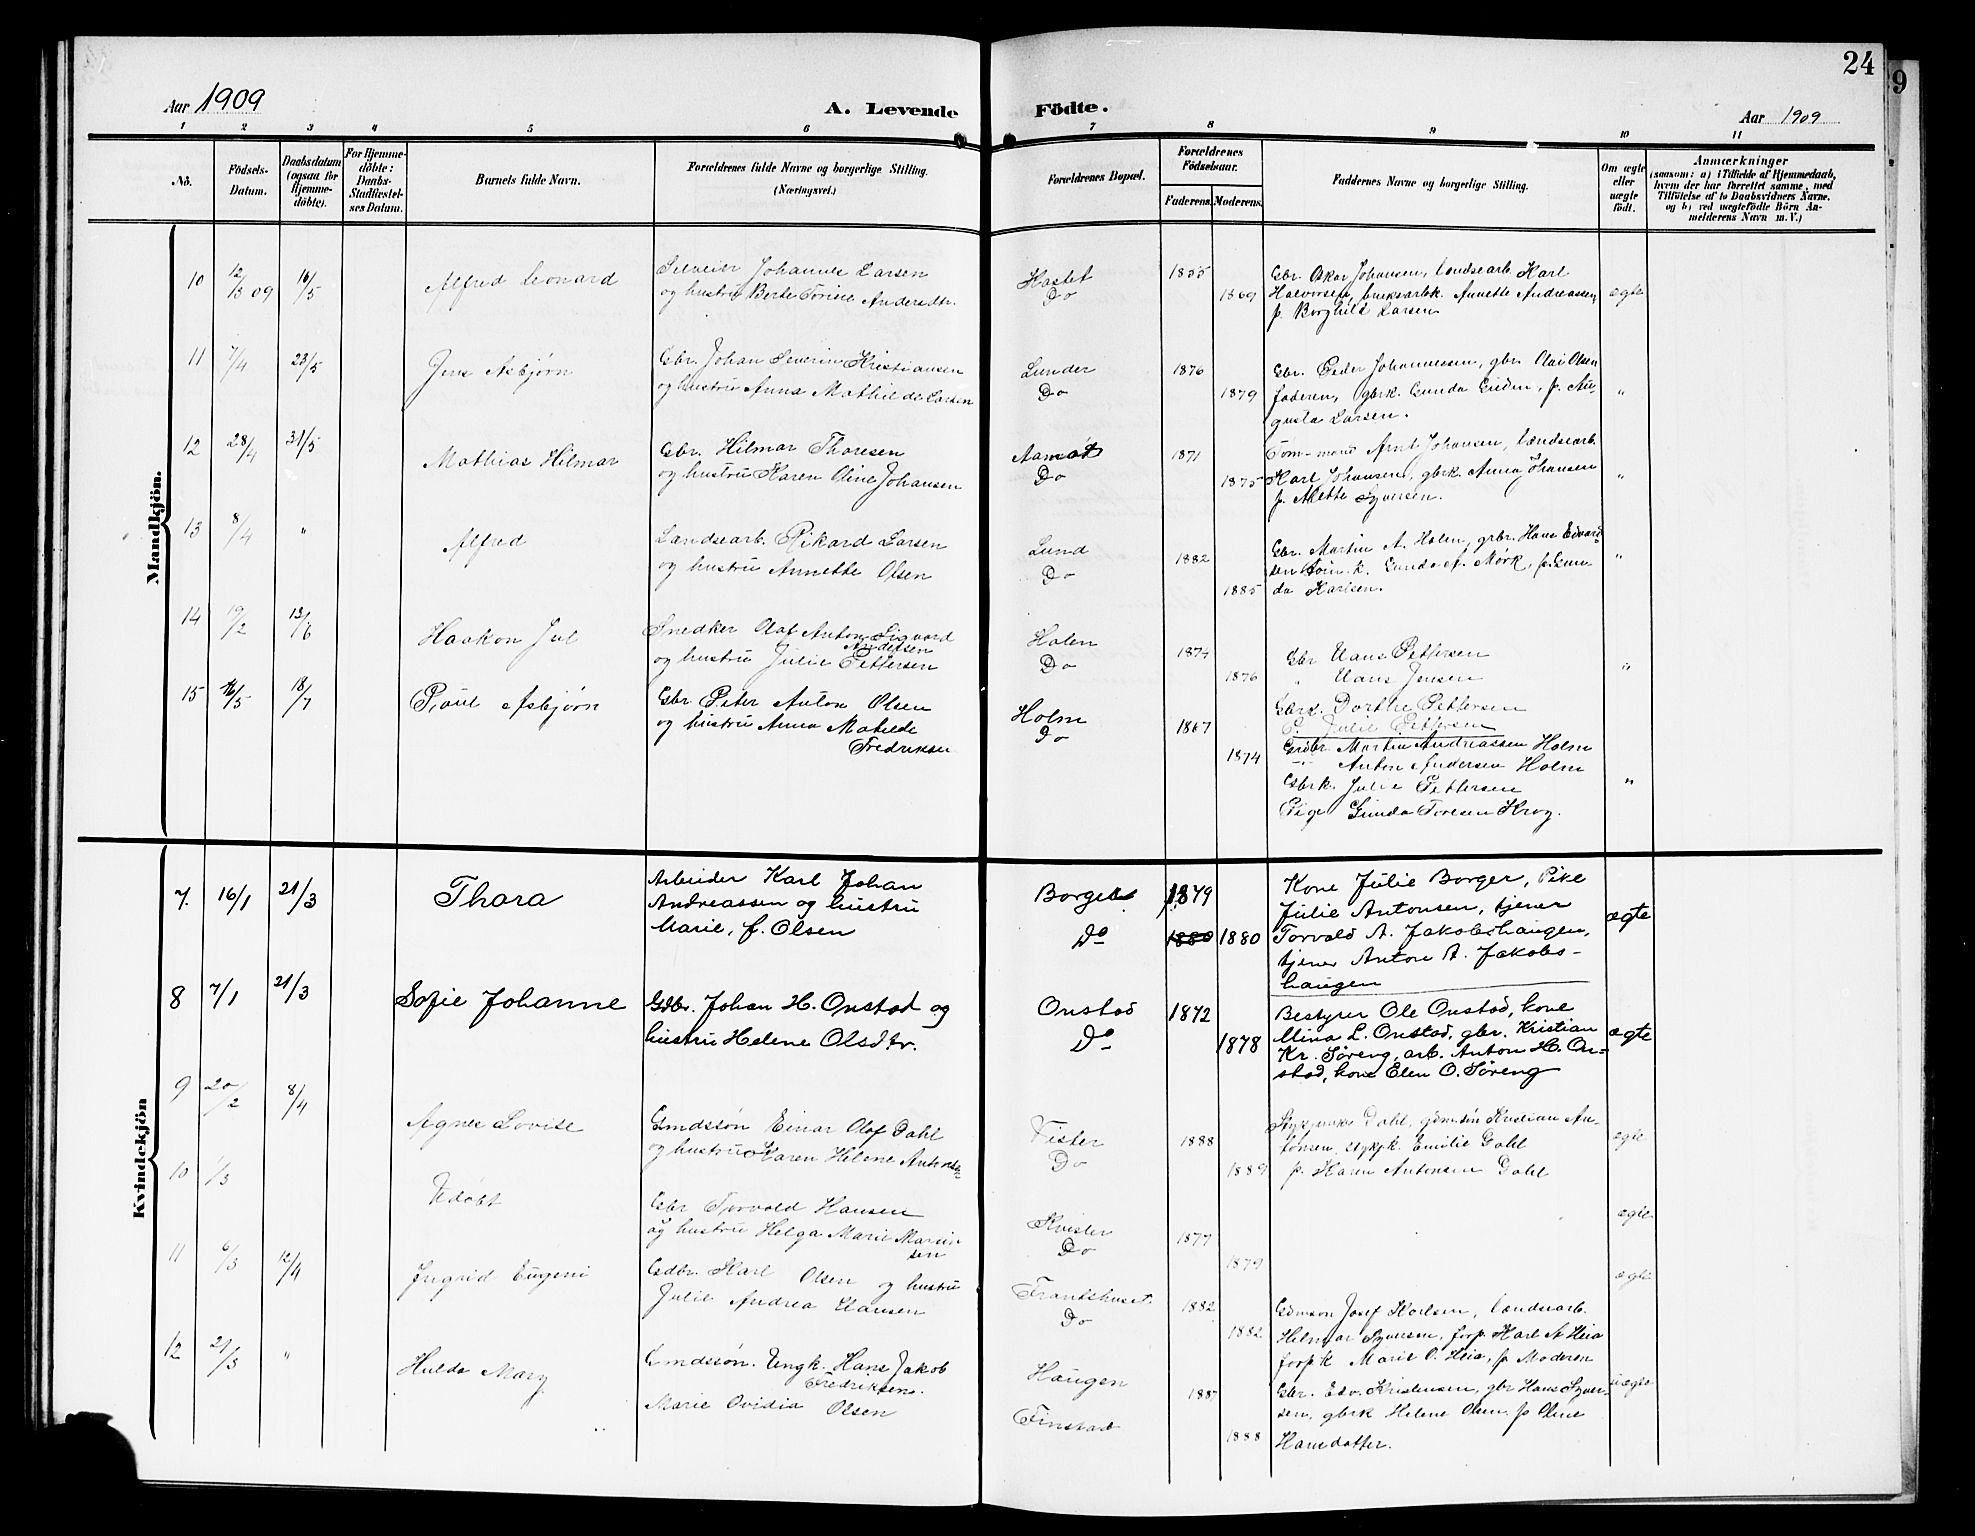 24
9
Aar 1909
A. Levende
Födte.
Aar 1909
1 2 3 4 5 6 7 8 9 10 11
No.
Födsels-
Datum.
Daabsdatum
(ogsaa for
Hjemme-
döbte).
For Hjemme-
döbte:
Daabs-
Stadfæstel-
ses Datum.
Barnets fulde Navn.
Forældrenes fulde Navne og borgerlige Stilling.
(Næringsvei.)
Forældrenes Bopæl.
Forældrenes
Födselsaar.
Faderens. Moderens.
Faddernes Navne og borgerlige Stilling.
Om ægte
eller
uægte
födt.
Anmærkninger
(saasom: a) i Tilfælde af Hjemmedaab,
hvem der har forrettet samme, med
Tilföielse af to Daabsvidners Navne.
og b) ved uægtefödte Börn An-
melderens Navn m. V.)
Mandkjön.
10 12/3 09 16/5 Alfred Leonard
Johannes Larsen
og hustru Berte Torine Andersdtr.
Hastet
Do
1855
1869
Gbr. Oskar Johansen, landsearb. Karl
Halvorsen, bruksarbk. Annette Andreassen,
p. Borghild Larsen
ægte
11 7/4 23/5 Jens Asbjørn
Gbr. Johan Severin Kristiansen
og hustru Anna Mathilde Larsen
Lunder
Do
1876
1879
Gbr. Peder Johannessen, gbr. Olai Olsen
faderen, gbrk. Gunda Gudim, p. Au-
gusta Larsen.
"
12 28/4 31/5 Mathias Hilmar
Gbr. Hilmar Thoresen
og hustru Karen Oline Johansen
Aamot
Do
1871
1875
Tøm-mand Arnt Johansen, landsearb.
Karl Johansen, gbrk. Anna Johansen
p. Alette Syversen.
"
13 8/4 " Alfred
Landsearb. Rikard Larsen
og hustru Annette Olsen
Lund
Do
1882
1885
Gbr. Martin A. Holen, grbr. Hans Edvard-
sen Gunda Mørk, p. Gun-
da Karlsen.
"
14 19/2 13/6 Haakon Jul
Snedker Olaf Anton Sigvard
Andersen
og hustru Julie Pettersen
Holen
Do
1874
1876
Gbr Hans Pettersen
" Hans Jensen
Gbrk. Dorthe Pettersen
E. Julie Pettersen
"
15 16/5 18/7 Poul Asbjørn
Gbr Peter Anton Olsen
og hustru Anna Matilde
Fredriksen
Holm
Do
1867
1874
Grdbr. Martin Andreassen Holm
" Anton Andersen Holm
Gbrk. Julie Pettersen
Pige Gunda Toresen Krog.
"
Kvindekjön
7. 16/1 21/3 Thora
Arbeider Karl Johan
Andreassen og hustru
Marie, f. Olsen
Borge
Do
1879
1880 1880
Kone Julie Borger, Pike
Julie Antonsen, tjener
Torvald A. Jakobshaugen,
tjener Anton A. Jakobs-
haugen
ægte
8 7/1 21/3 Sofie Johanne
Gdbr. Johan H. Onstad og
hustru Helene Olsdtr.
Onstad
Do
1872
1878
Bestyrer Ole Onstad, kone
Mina L. Onstad, gbr. Kristian
Kr. Søreng, arb. Anton H. On-
stad, kone Elen O. Søreng
ægte
9 20/2 8/4 Agnes Lovise
Gmdssön Einar Olaf Dahl
og hustru Karen Helene Antonsen
Vister
Do
1888
1889
Dahl, gdmsön Kristian An-
tonsen, stykjk. Emilie Dahl
p. Hanna Antonsen Dahl
ægte
10 1/3 Udøbt
Gbr Torvald Hansen
og hustru Helga Marie Martin
sen
Kvister
Do
1877
1879
ægte
11 6/3 12/4 Ingrid Eugeni
Gdbr. Karl Olsen og hustru
Julie Andrea Hansen
Frantshuset.
Do
1882
1882
Gdmsøn Josef Karlsen, landsearb.
Hilmar Syversen, forp. Karl A Heia
forpk Marie O. Heia, p. Moderen
ægte
12 21/3 " Hulda Mary
Gmdssön. Ungk. Hans Jakob
Fredriksen.
Marie Ovidia Olsen
Haugen
Finstad
1887
1888
Gbr. Edv. Kristensen, gbr Hans Syver-
sen, gbrk Helene Olsen. p Oline
Hansdatter.
uægte